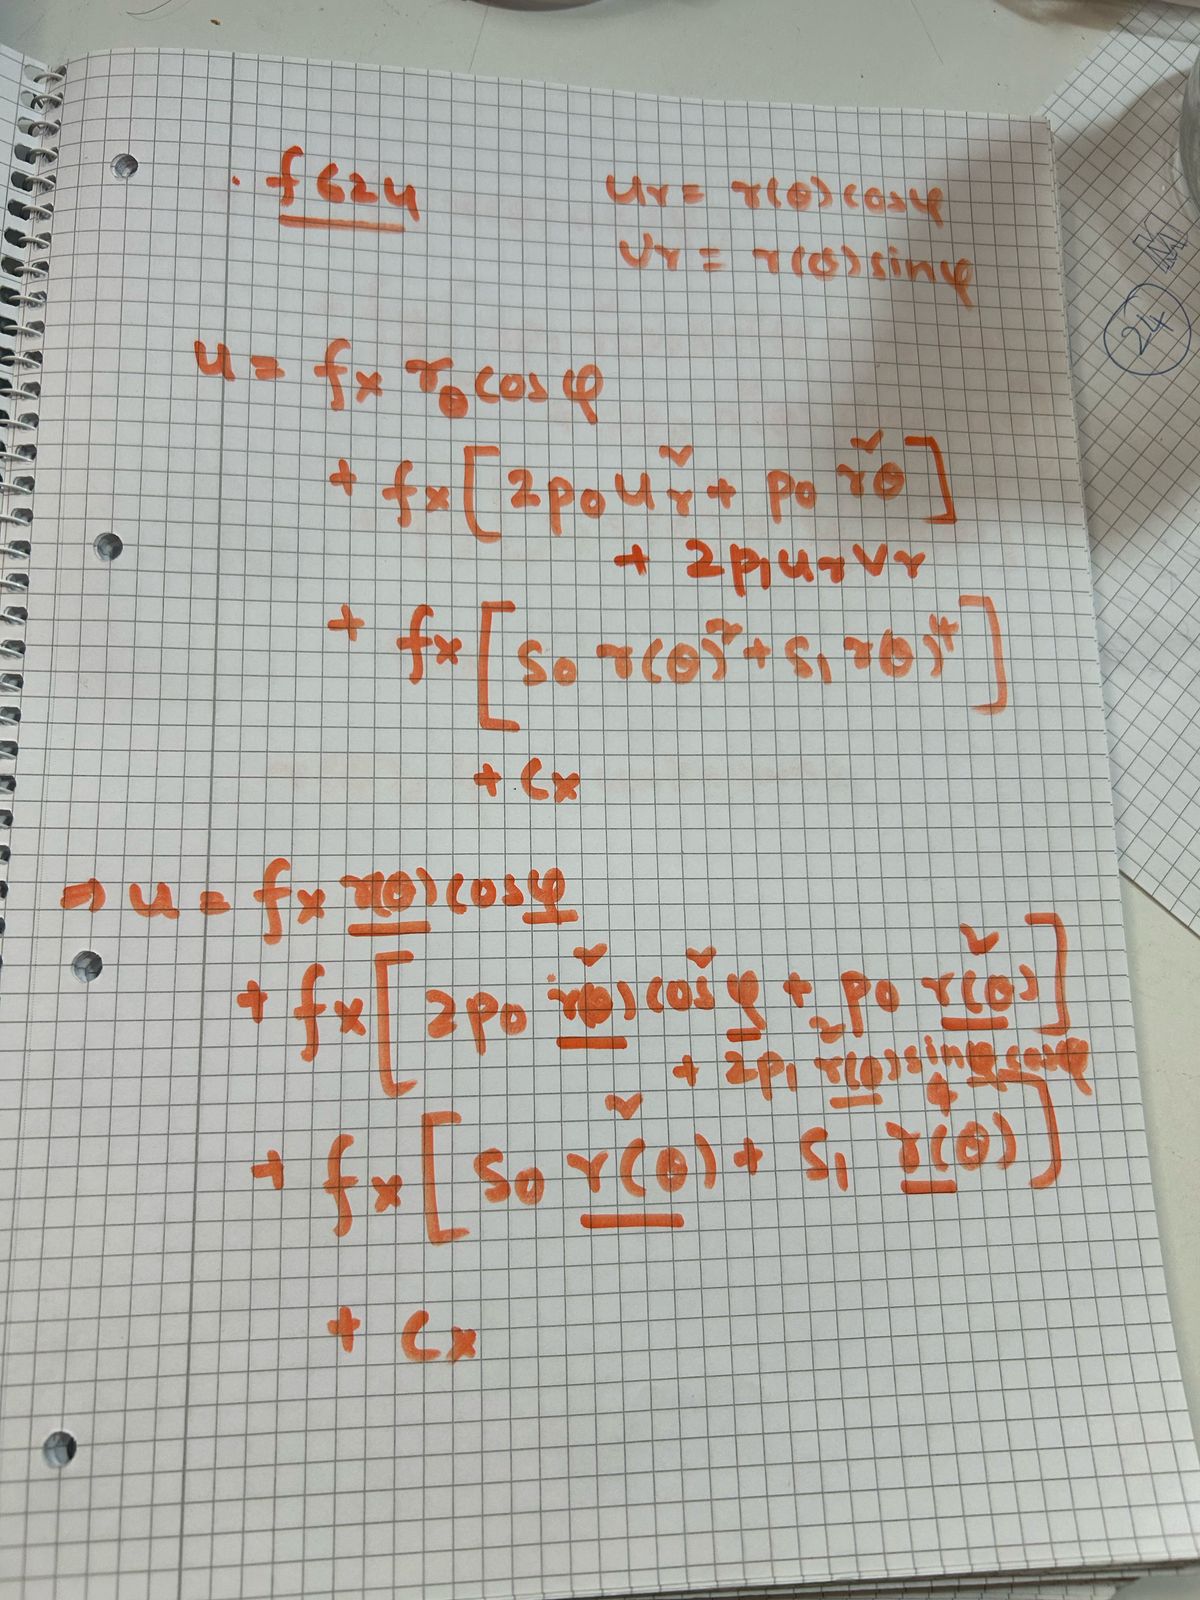 . f624
ur = r(θ)cosφ
vr = r(θ)sinφ
24
u = fx rθ cosφ
+ fx [2p0 ur² + p0 rθ²]
+ 2p1 ur vr
+ fx [s0 r(θ)² + s1 r(θ)⁴]
+ Cx
⇒ u = fx r(θ)cosφ
+ fx [2p0 r²(θ)cos²φ + p0 r²(θ)]
+ 2p1 r²(θ)sinφcosφ
+ fx [s0 r²(θ) + s1 r⁴(θ)]
+ Cx